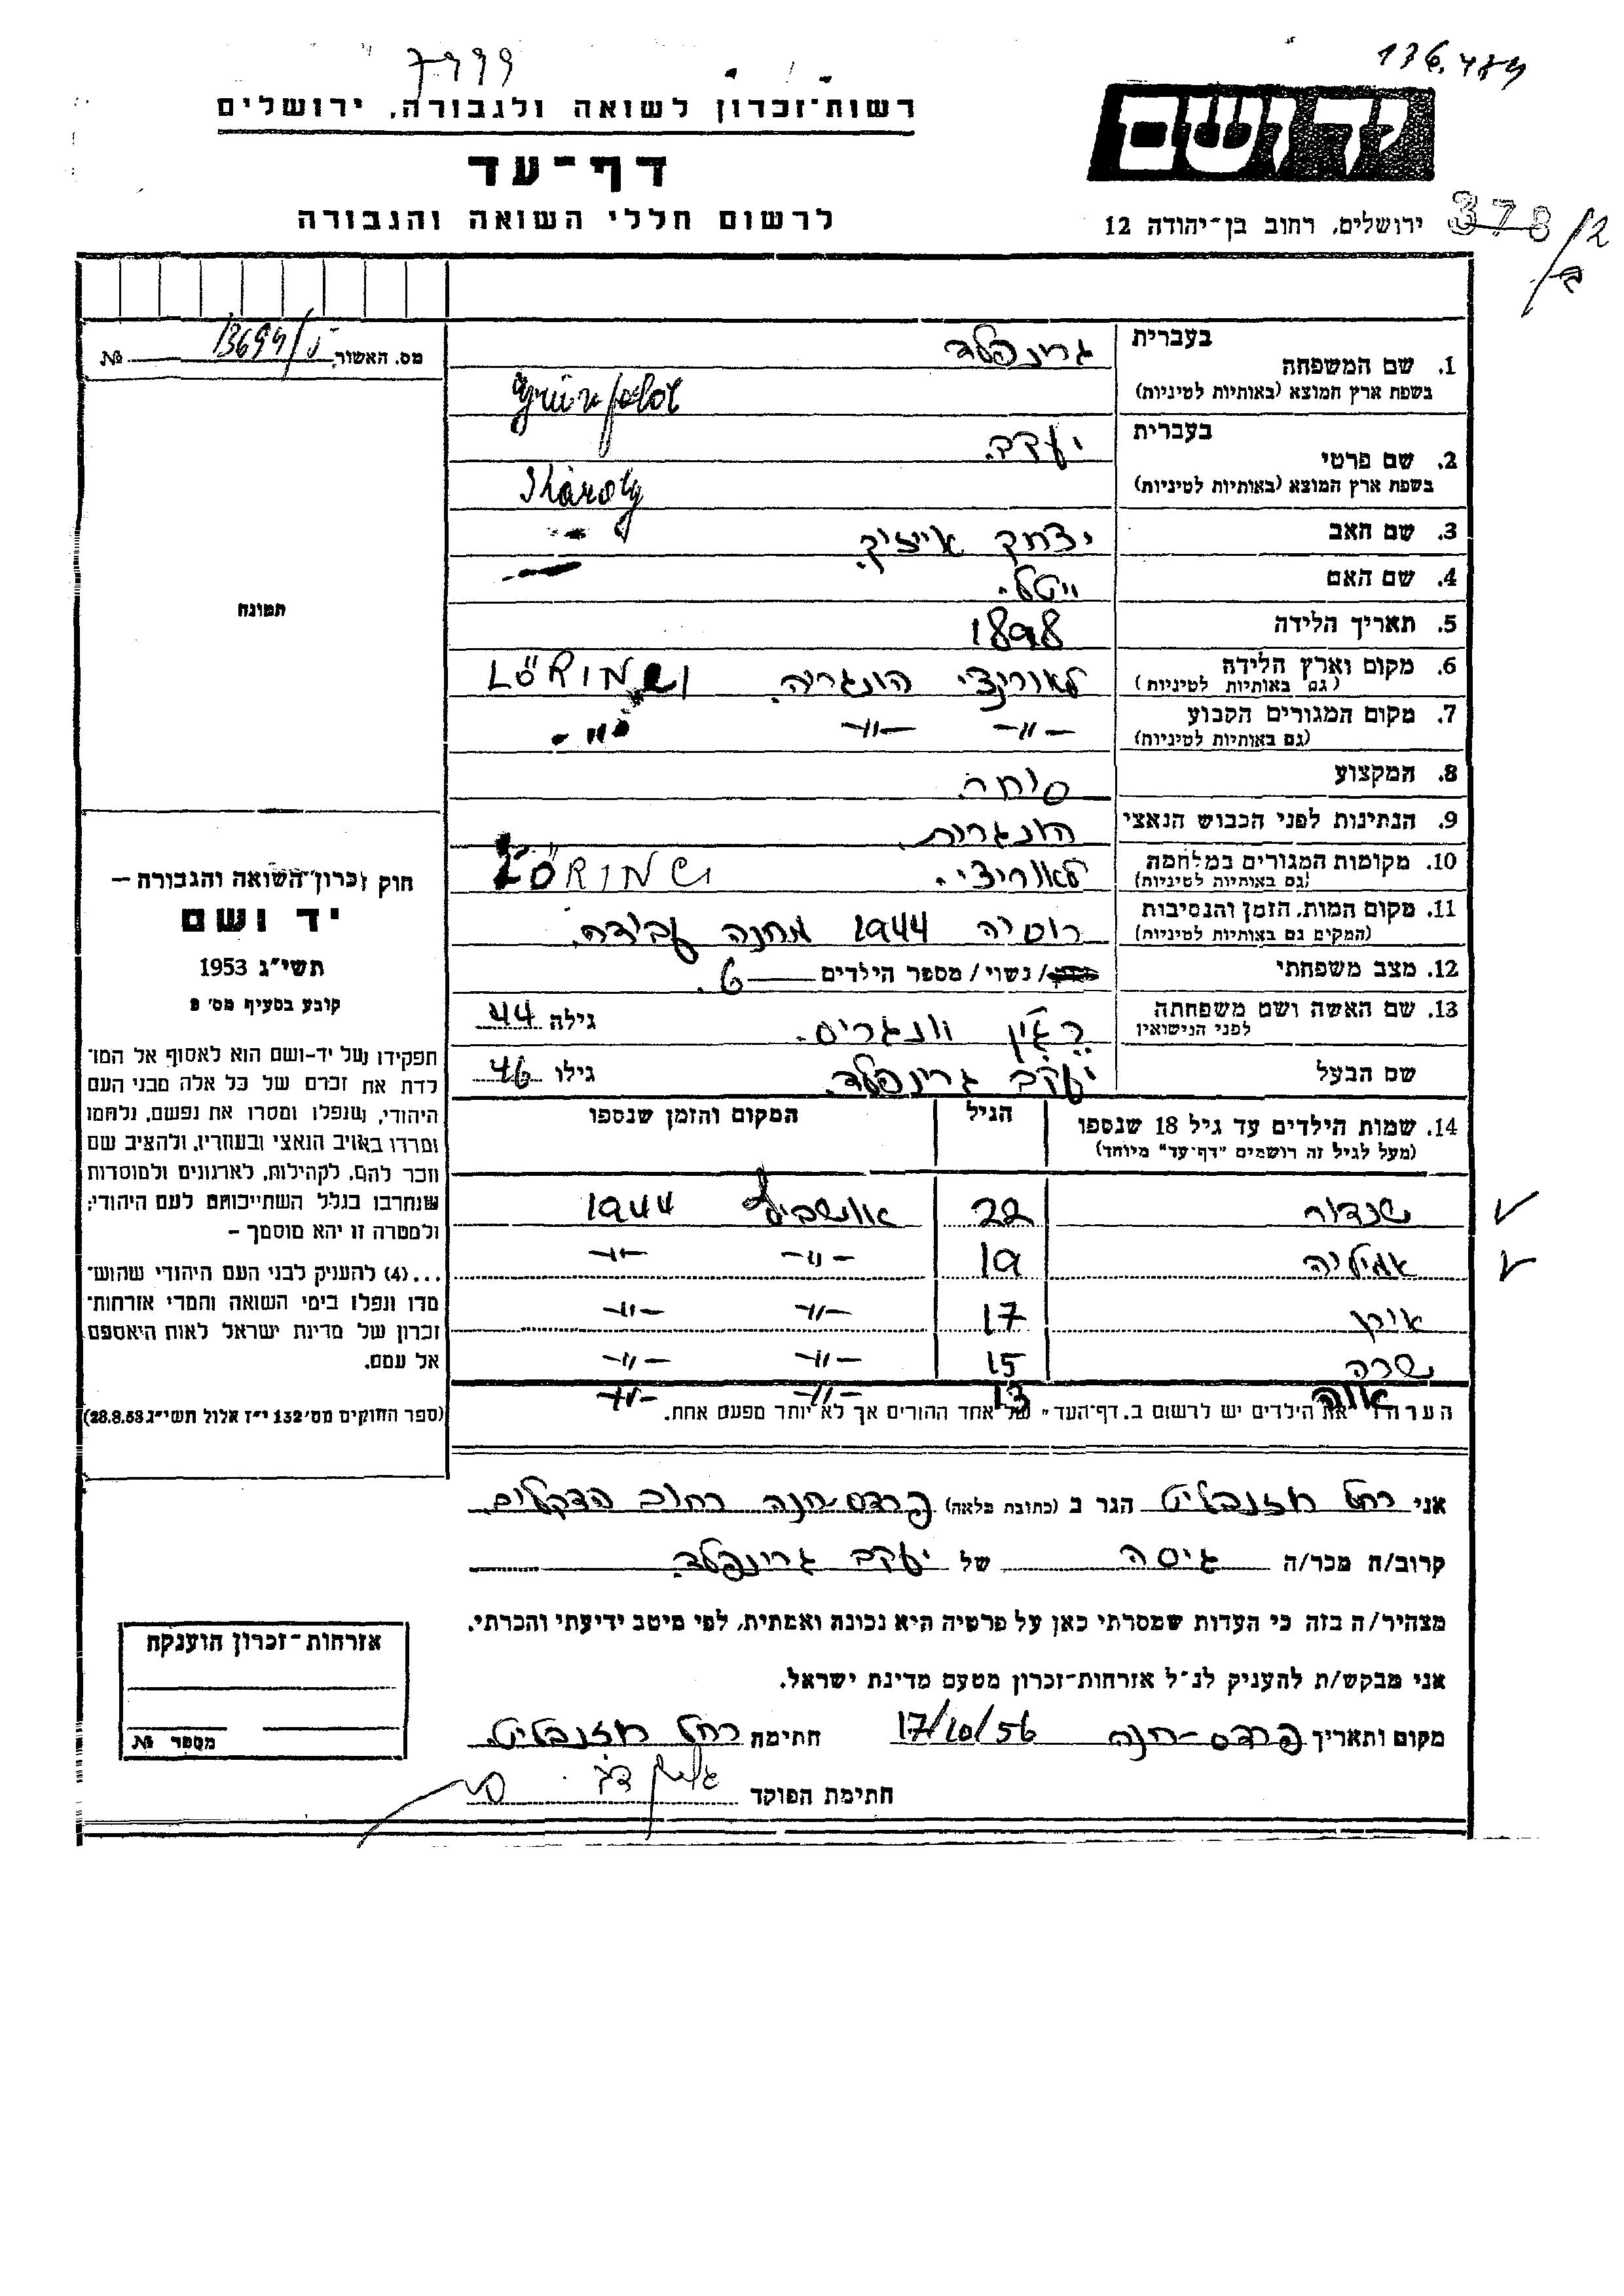 7999
136,484
רשות־זכרון לשואה ולגבורה, ירושלים
יד ושם
דף־עד
לרשום חללי השואה והגבורה
ירושלים, רחוב בן־יהודה 12
378/2
מס. האשור № 13694/
1. שם המשפחה
בעברית גרינפלד
בשפת ארץ המוצא (באותיות לטיניות) Grünfeld
2. שם פרטי
בעברית יעקב.
בשפת ארץ המוצא (באותיות לטיניות) Károly
3. שם האב יצחק אייזיק.
4. שם האם ייטל.
5. תאריך הלידה 1898
6. מקום וארץ הלידה לאורינצי הונגריה. LÖRINCI
(גם באותיות לטיניות)
7. מקום המגורים הקבוע -"- -"- -"-
(גם באותיות לטיניות)
8. המקצוע סוחר.
9. הנתינות לפני הכבוש הנאצי הונגרית.
10. מקומות המגורים במלחמה לאוריצי. LÖRINCI
(גם באותיות לטיניות)
11. מקום המות, הזמן והנסיבות רוסיה 1944 מחנה עבודה.
(המקום גם באותיות לטיניות)
12. מצב משפחתי / נשוי / מספר הילדים 6.
13. שם האשה ושם משפחתה לפני הנישואין וונגרים. גילה 44
שם הבעל יעקב גרינפלד. גילו 46
14. שמות הילדים עד גיל 18 שנספו הגיל המקום והזמן שנספו
(מעל לגיל זה רושמים "דף־עד" מיוחד)
שנדור 22 אושביץ 1944
אמיליה 19 -"- -"-
איקן 17 -"- -"-
שרה 15 -"- -"-
אווה 13 -"- -"-
הערה: את הילדים יש לרשום ב"דף־העד" של אחד ההורים אך לא יותר מפעם אחת.
תמונה
חוק זכרון השואה והגבורה —
יד ושם
תשי"ג 1953
קובע בסעיף מס' 2
תפקידו של יד-ושם הוא לאסוף אל המו־
לדת את זכרם של כל אלה מבני העם
היהודי, שנפלו ומסרו את נפשם, נלחמו
ומרדו באויב הנאצי ובעוזריו, ולהציב שם
וזכר להם, לקהילות, לארגונים ולמוסדות
שנחרבו בגלל השתייכותם לעם היהודי;
ולמטרה זו יהא מוסמך –
...(4) להעניק לבני העם היהודי שהוש־
מדו ונפלו בימי השואה והמרי אזרחות־
זכרון של מדינת ישראל לאות היאספם
אל עמם.
(ספר החוקים מס' 132 י"ז אלול תשי"ג 28.8.53)
אני רחל רוזנבליט הגר ב (כתובת מלאה) פרדס-חנה רחוב הדקלים
קרוב/ה מכר/ה גיסה של יעקב גרינפלד.
מצהיר/ה בזה כי העדות שמסרתי כאן על פרטיה היא נכונה ואמתית, לפי מיטב ידיעתי והכרתי.
אני מבקש/ת להעניק לנ"ל אזרחות-זכרון מטעם מדינת ישראל.
מקום ותאריך פרדס-חנה 17/10/56 חתימה רחל רוזנבליט.
חתימת הפוקד
אזרחות־זכרון הוענקה
מספר №